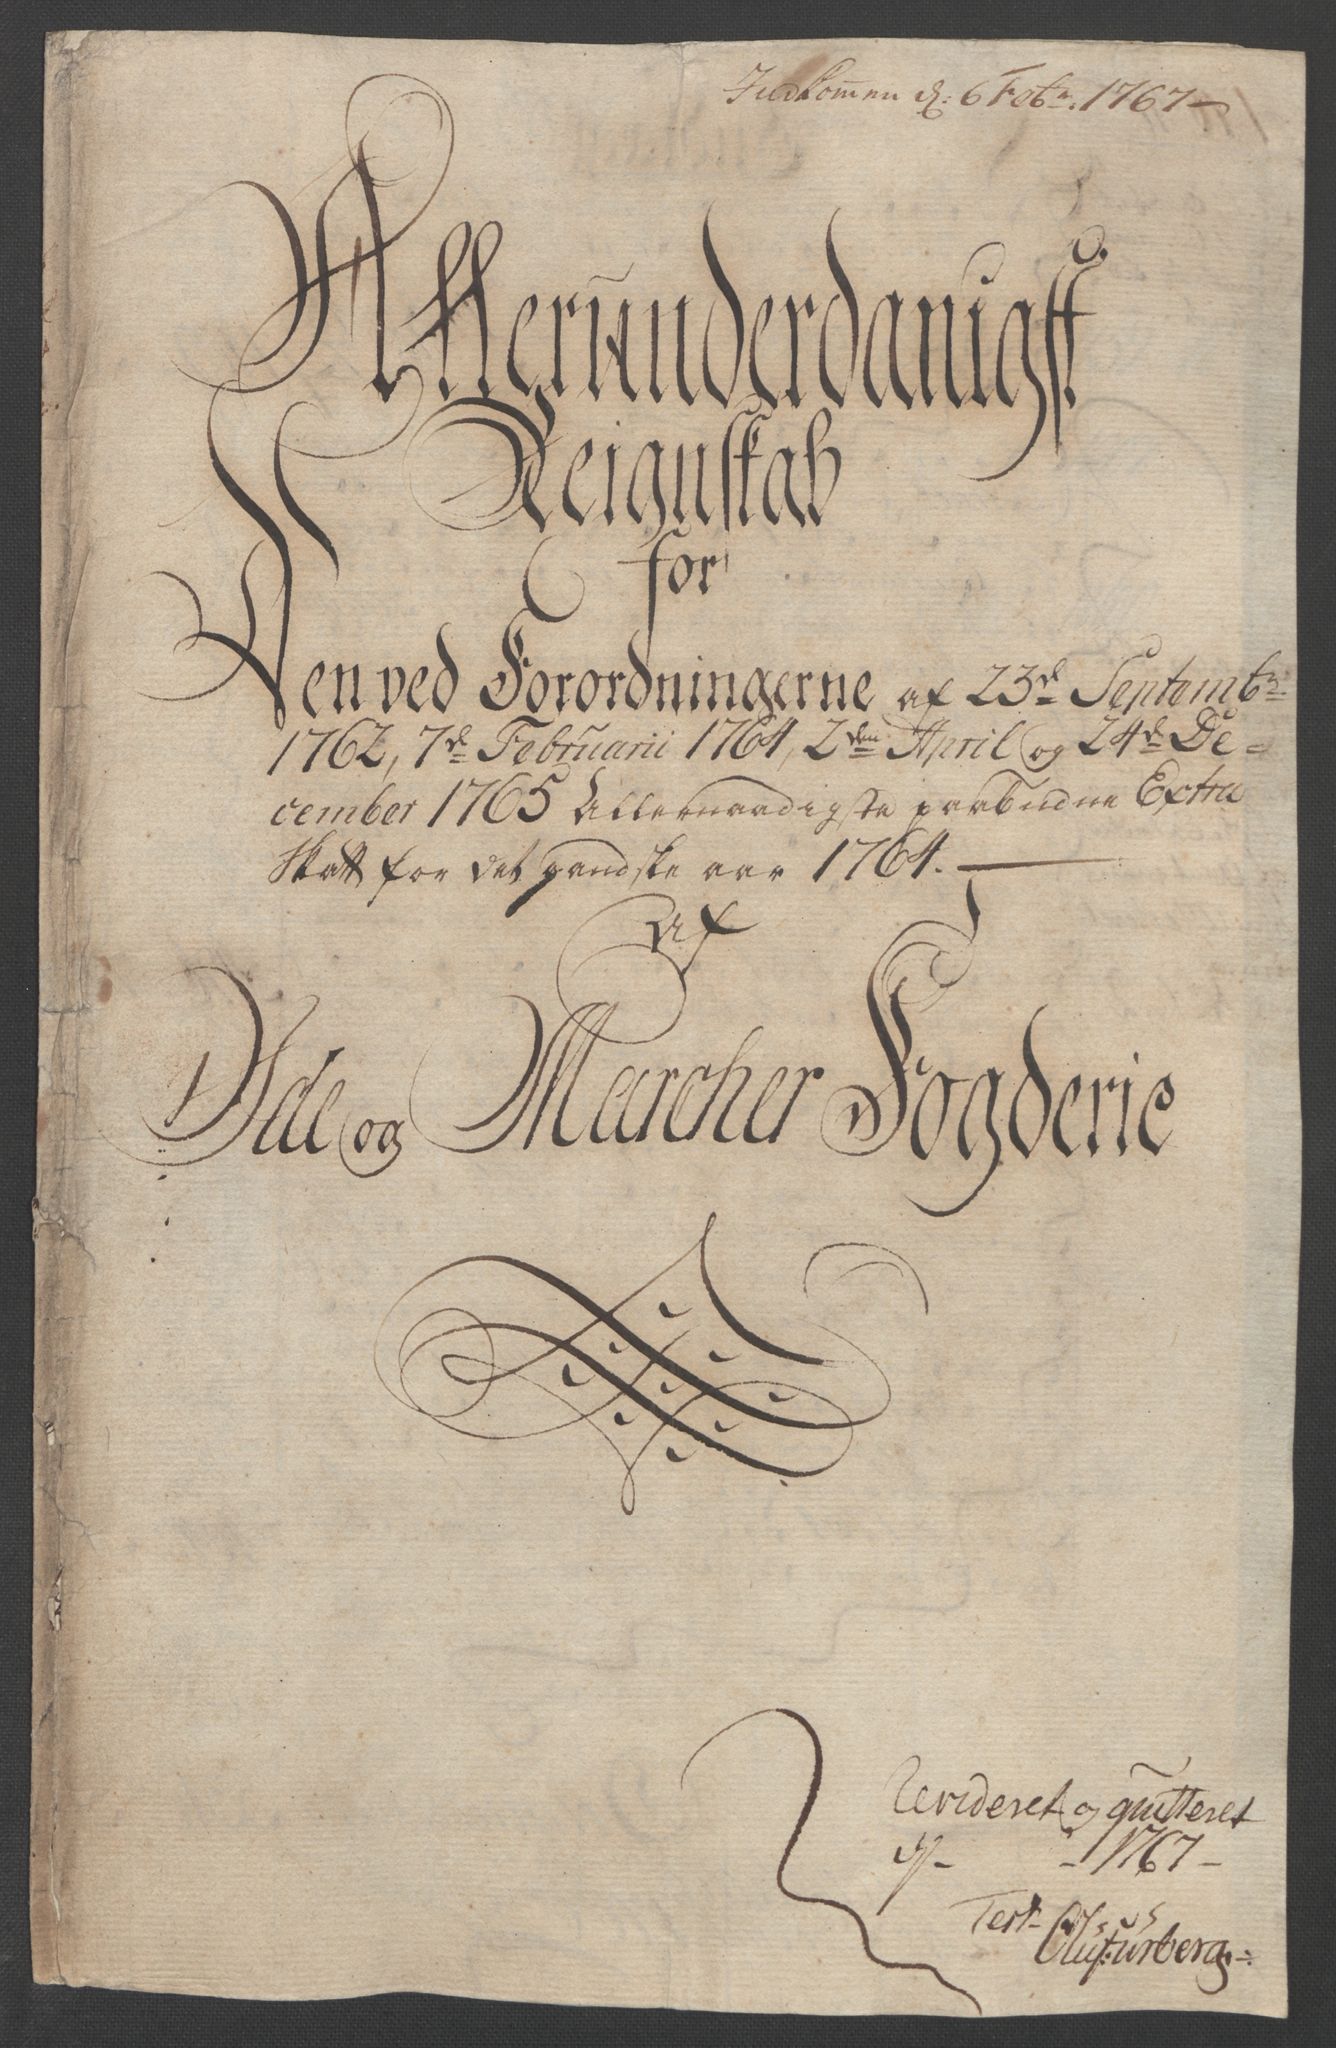 Indkommen d: 6 Febr. 1767
Allerunderdanigst
Reignskab
for
Den ved Forordningerne af 23de Septembr.
1762, 7de Februarii 1764, 2den April og 24de De-
cember 1765 Allernaadigste paabudne Extra
Skatt for det gandske aar 1764.
Af
Ide og Marcher Fogderie
Revideret og qvitteret
d. - 1767
Test.